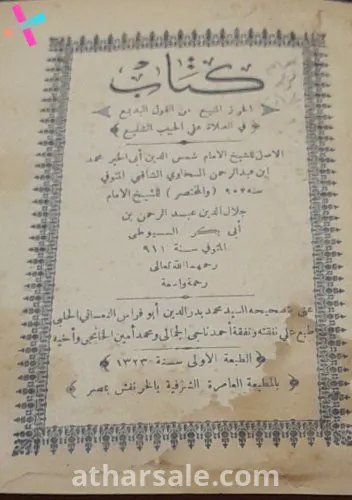 كتاب
الحرز المنيع من القول البديع
في الصلاة على الحبيب الشفيع
الاصل للشيخ الامام شمس الدين أبى الخير محمد
ابن عبد الرحمن السخاوي الشافعي المتوفي
سنة ٩٠٢ (والمختصر) للشيخ الامام
جلال الدين عبد الرحمن بن
أبى بكر السيوطى
المتوفي سنة ٩١١
رحمهما الله تعالى
رحمة واسعة
عنى بتصحيحه السيد محمد بدر الدين أبو فراس النعساني الحلبي
طبع على نفقته ونفقة أحمد ناجى الجمالى ومحمد أمين الخانجى وأخيه
الطبعة الأولى سنة ١٣٢٣
بالمطبعة العامرة الشرفية بالخرنفش بمصر
atharsale.com